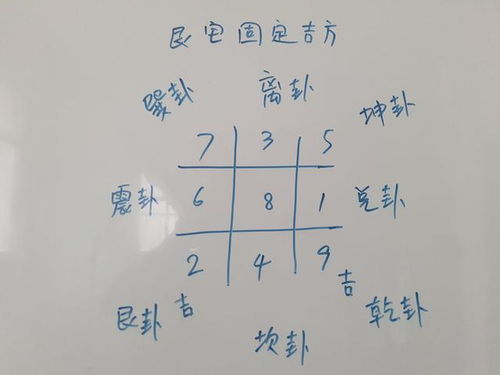 艮宅固定吉方
巽卦 离卦 坤卦
7 3 5
震卦 6 8 1 兑卦
2 4 9
艮卦 吉 吉 乾卦
坎卦